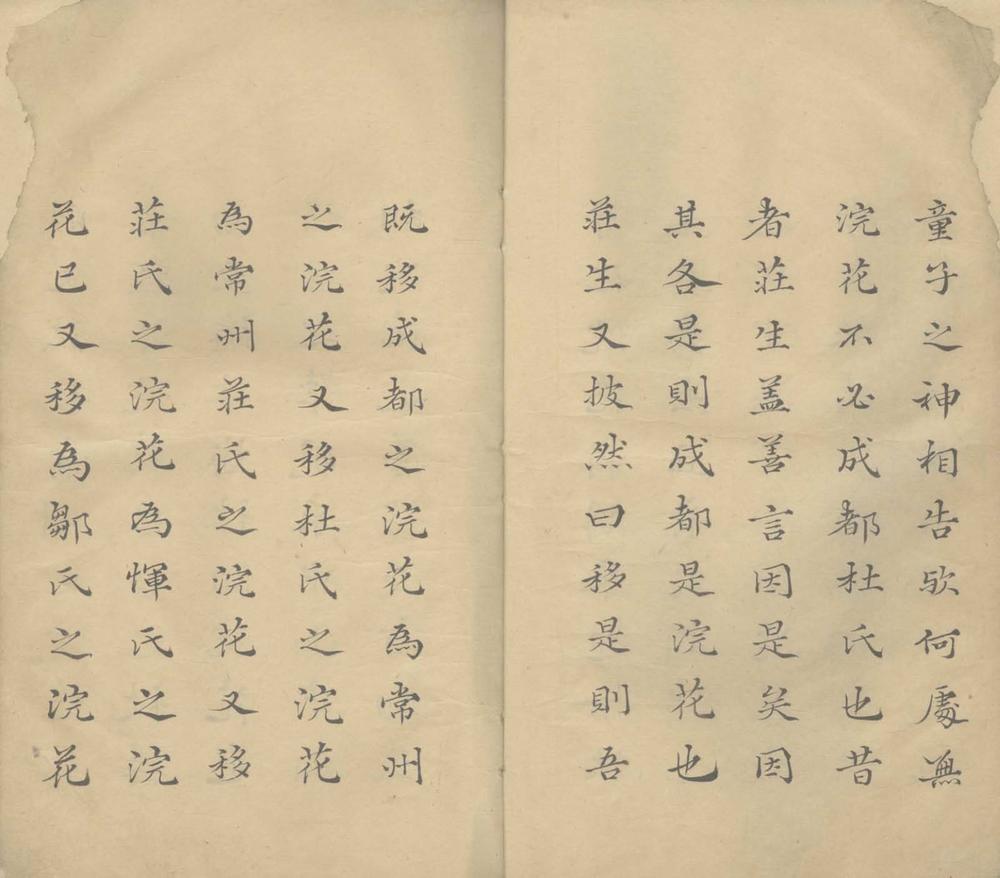 童子之神相告欤何處無
浣花不必成都杜氏也昔
者莊生盖善言因是矣因
其各是則成都是浣花也
莊生又披然曰移是則吾
既移成都之浣花為常州
之浣花又移杜氏之浣花
為常州莊氏之浣花又移
莊氏之浣花為惲氏之浣
花已又移為鄒氏之浣花